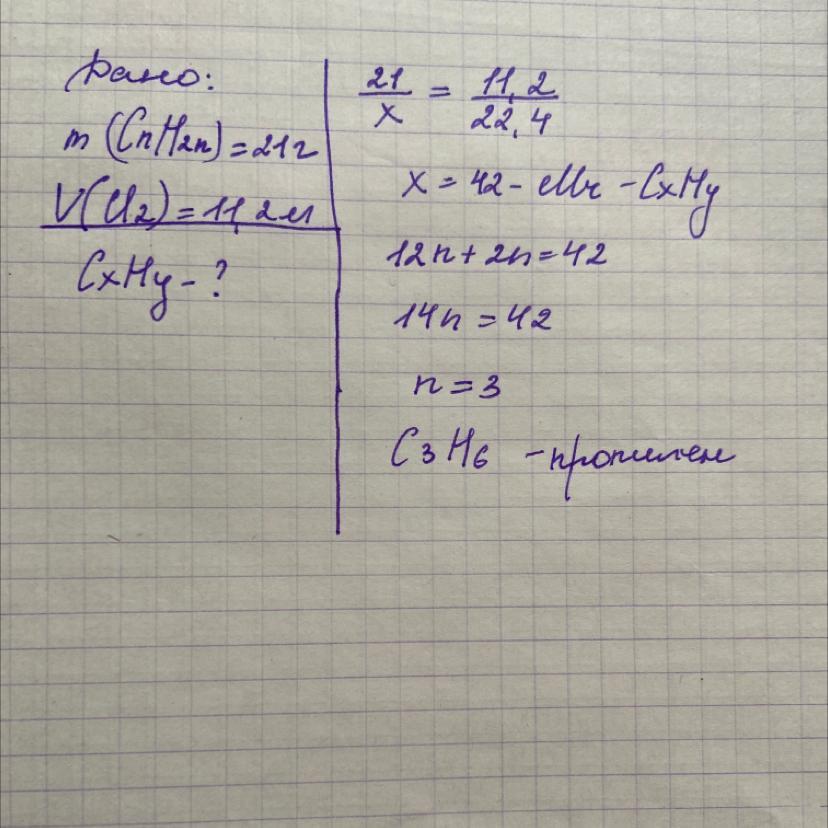 Дано:
m (CnH2n) = 21 г
V(Cl2) = 11,2 л
CxHy - ?
21/x = 11,2/22,4
x = 42 - Mr - CxHy
12n + 2n = 42
14n = 42
n = 3
C3H6 - пропилен